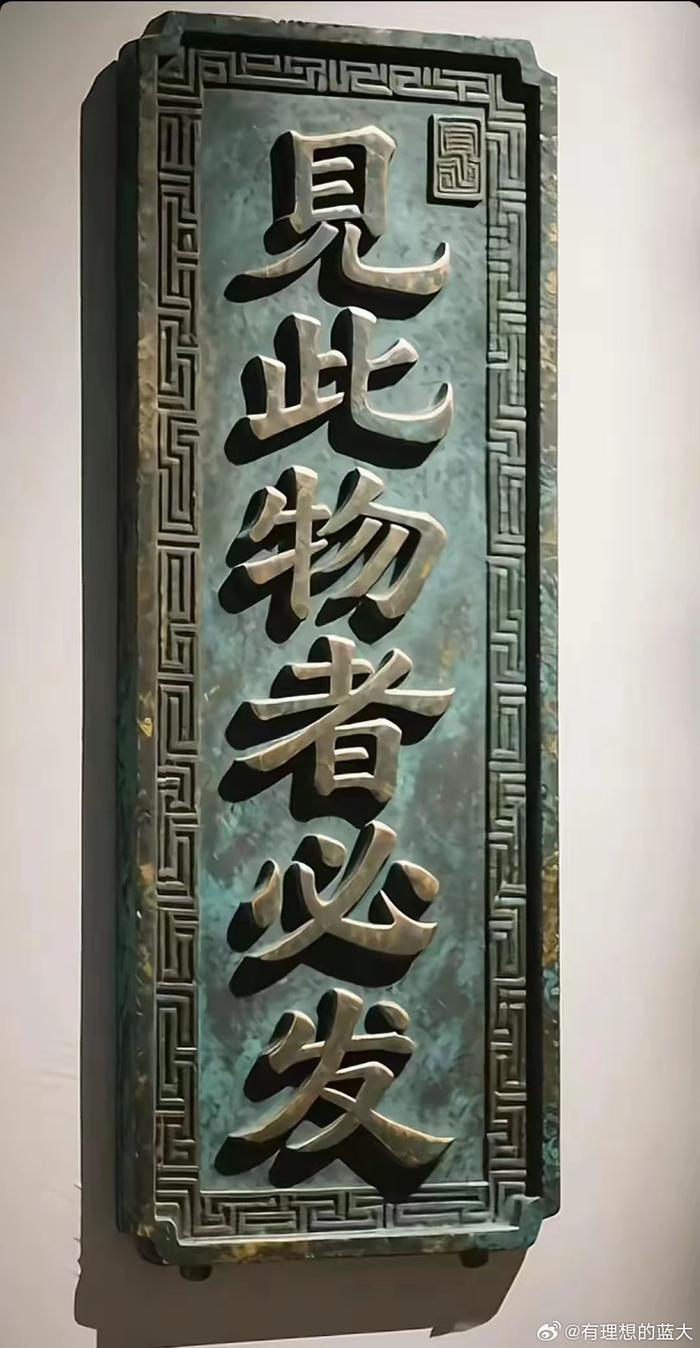 見此物者必发
@有理想的蓝大